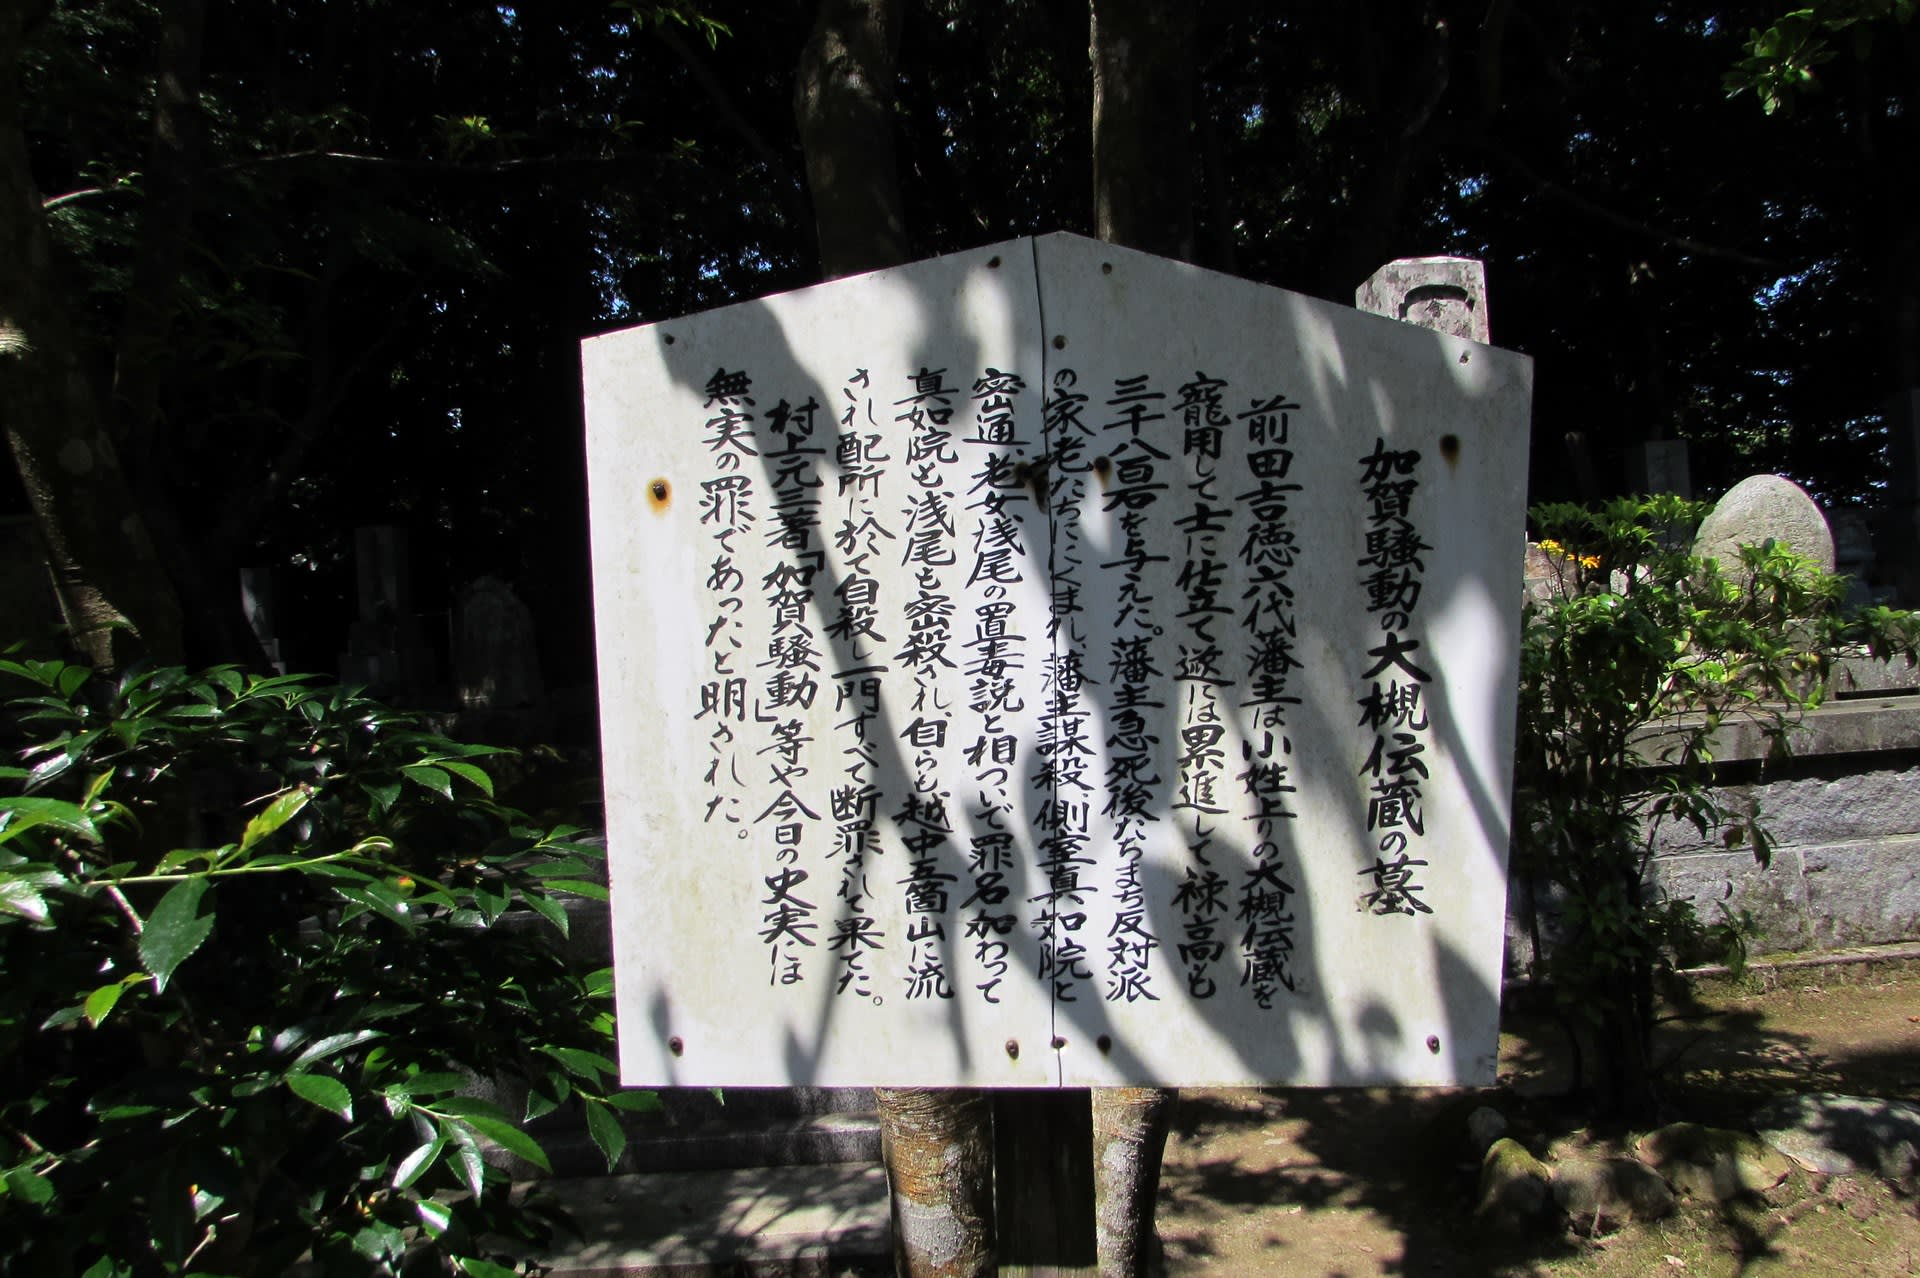 加賀騒動の大槻伝蔵の墓
前田吉徳六代藩主は小姓上りの大槻伝蔵を
寵用して士に仕立て遂には累進して禄高も
三千八百石を与えた。藩主急死後たちまち反対派
の家老たちににくまれ、藩主謀殺、側室真如院と
密通、老女浅尾の置毒説と相ついで罪名加わって
真如院も浅尾も密殺され、自らも越中五箇山に流
され配所に於て自殺し一門すべて断罪されて果てた。
村上元三著「加賀騒動」等や今日の史実には
無実の罪であったと明された。